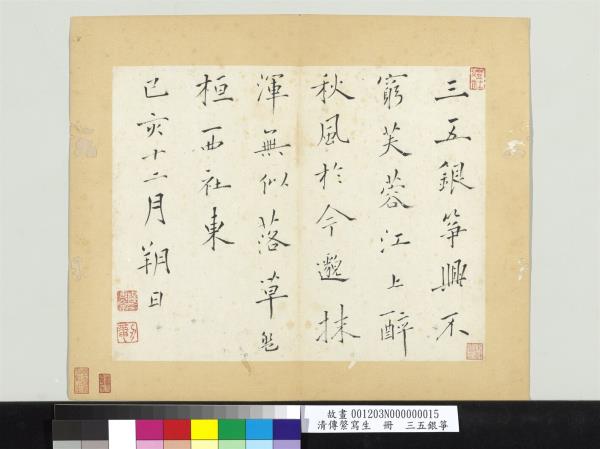 三五銀箏興不
窮芙蓉江上醉
秋風於今邈抹
渾無似落草盤
桓西社東
己亥十二月朔日
故畫 001203N000000015
清傅縈寫生 冊 三五銀箏